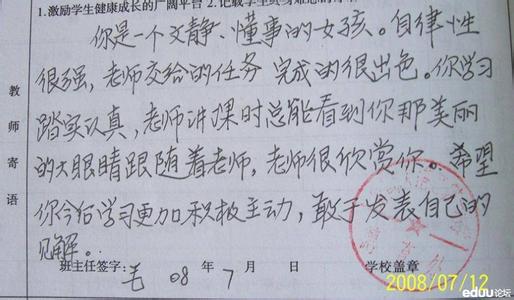 1.激励学生健康成长的广阔平台 2.记载学生
你是一个文静、懂事的女孩。自律性
很强,老师交给的任务完成的很出色。你学习
踏实认真,老师讲课时总能看到你那美丽
的大眼睛跟随着老师,老师很欣赏你。希望
你今后学习更加积极主动,敢于发表自己的
见解。
教师寄语
班主任签字:毛 08年7月 日 学校盖章
2008/07/12
eduu论坛